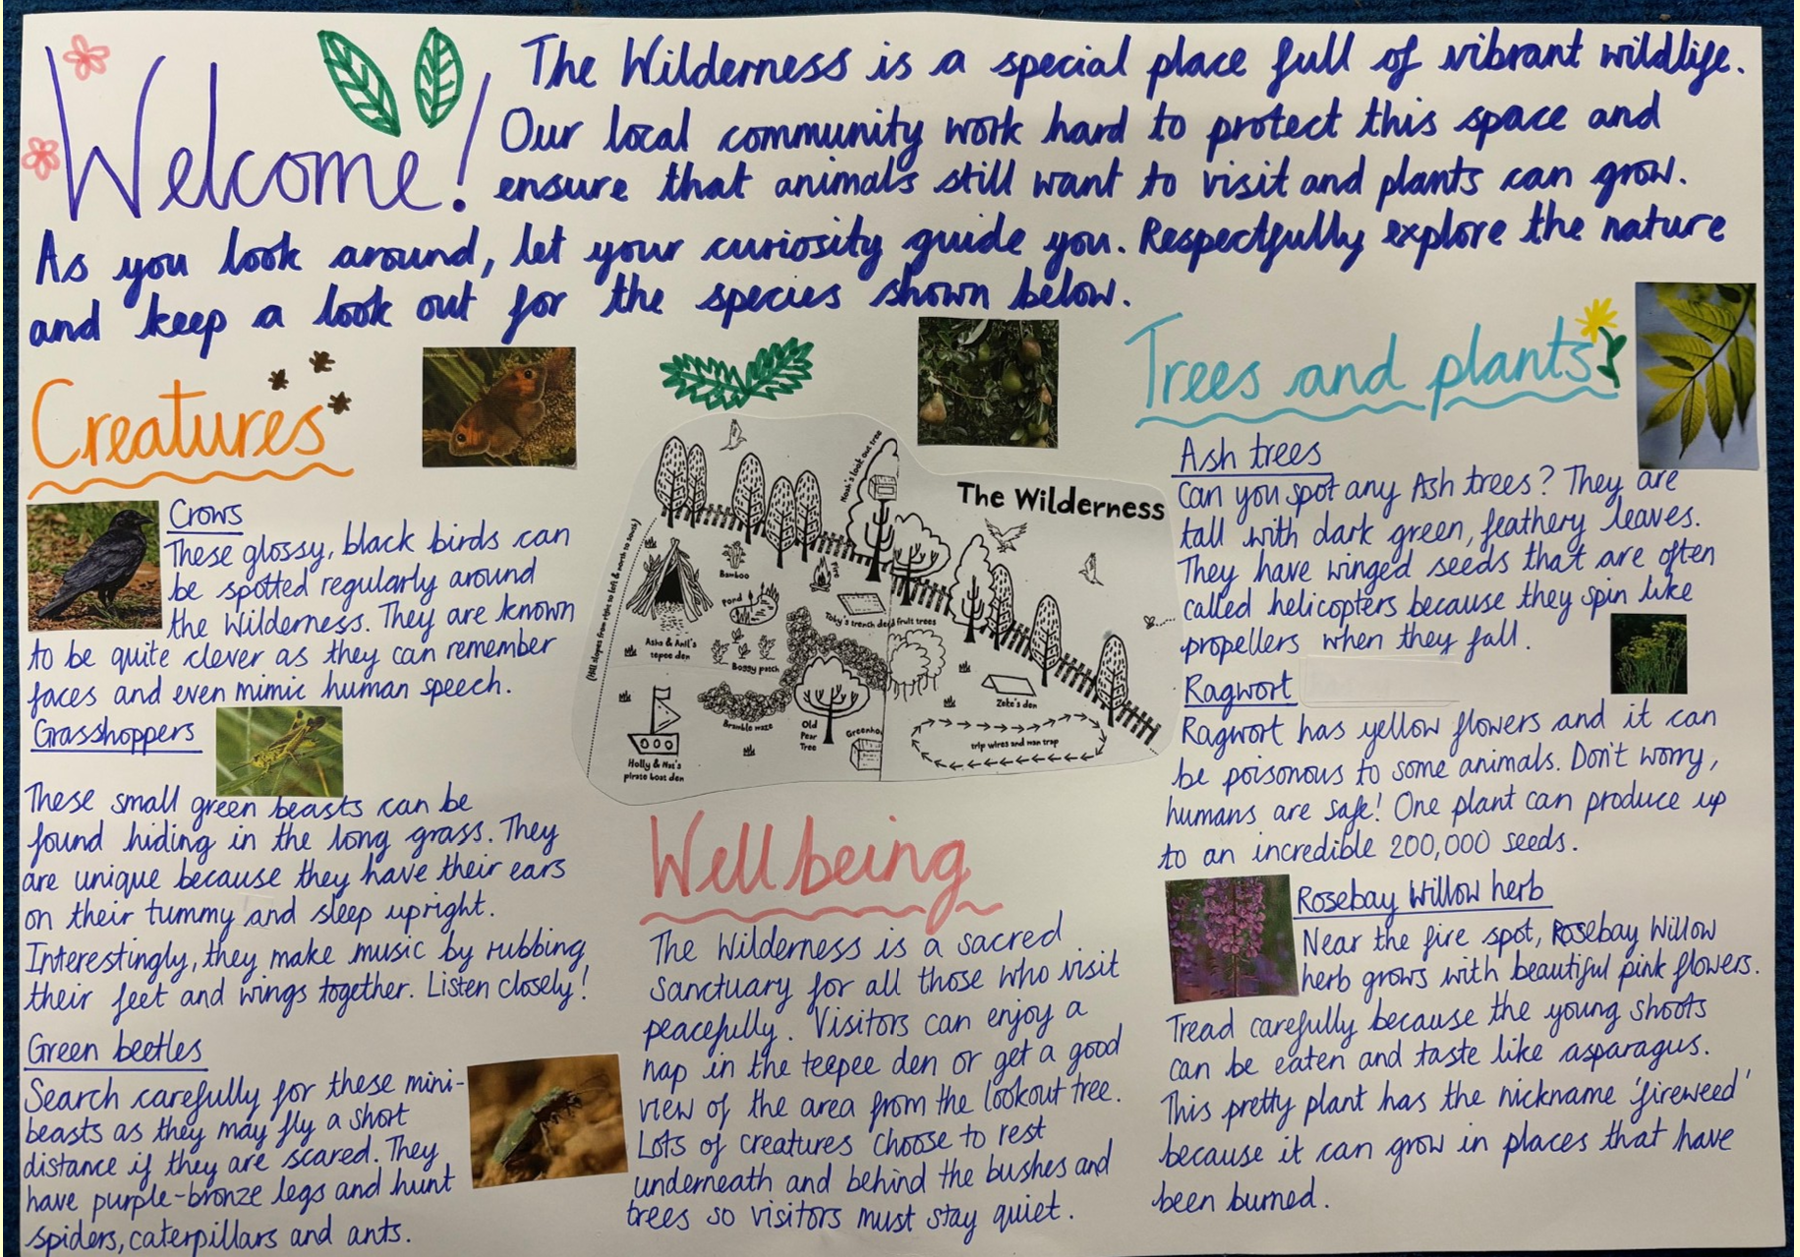 Welcome!
The Wilderness is a special place full of vibrant wildlife.
Our local community work hard to protect this space and
ensure that animals still want to visit and plants can grow.
As you look around, let your curiosity guide you. Respectfully explore the nature
and keep a look out for the species shown below.
Creatures
Crows
These glossy, black birds can
be spotted regularly around
the Wilderness. They are known
to be quite clever as they can remember
faces and even mimic human speech.
Grasshoppers
These small green beasts can be
found hiding in the long grass. They
are unique because they have their ears
on their tummy and sleep upright.
Interestingly, they make music by rubbing
their feet and wings together. Listen closely!
Green beetles
Search carefully for these mini-
beasts as they may fly a short
distance if they are scared. They
have purple-bronze legs and hunt
spiders, caterpillars and ants.
The Wilderness
Noah's look out tree
(Hill slopes from right to left & north to south)
Bamboo
Pond
Fire
Toby's trench
dead fruit trees
Asha & Anil's
tepee den
Boggy patch
Zeke's den
Bramble maze
Old
Pear
Tree
Greenho
trip wires and man trap
Holly & Nat's
pirate boat den
Wellbeing
The Wilderness is a sacred
sanctuary for all those who visit
peacefully. Visitors can enjoy a
nap in the teepee den or get a good
view of the area from the lookout tree.
Lots of creatures choose to rest
underneath and behind the bushes and
trees so visitors must stay quiet.
Trees and plants
Ash trees
Can you spot any Ash trees? They are
tall with dark green, feathery leaves.
They have winged seeds that are often
called helicopters because they spin like
propellers when they fall.
Ragwort
Ragwort has yellow flowers and it can
be poisonous to some animals. Don't worry,
humans are safe! One plant can produce up
to an incredible 200,000 seeds.
Rosebay Willow herb
Near the fire spot, Rosebay Willow
herb grows with beautiful pink flowers.
Tread carefully because the young shoots
can be eaten and taste like asparagus.
This pretty plant has the nickname 'fireweed'
because it can grow in places that have
been burned.